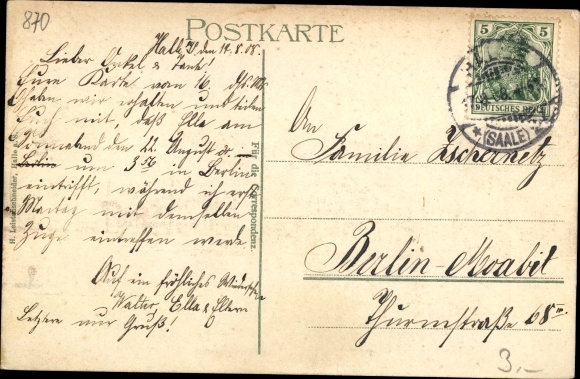 870
POSTKARTE
Halle S, den 19.8.08.
Lieber Onkel & Tante!
Eure Karte vom 16. ds. Mts
haben wir erhalten und teilen
Euch mit daß Ella am
Sonnabend den 22. August
Berlin um 3 in Berlin
eintrifft, während ich erst
Montag mit demselben
Zuge eintreffen werde
Auf ein fröhliches Wiedersehn
Walter Ella & Eltern
Letztere nur Gruß!
Für die Correspondenz
5 5
DEUTSCHES REICH
(SAALE)
An
Familie Zschernetz
Berlin-Moabit
Thurmstraße 68
3,-